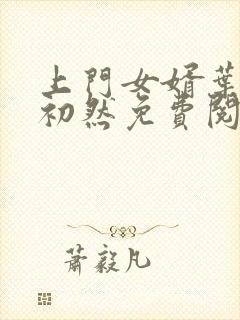 上門女婿葉
初然免費閱
蕭毅凡